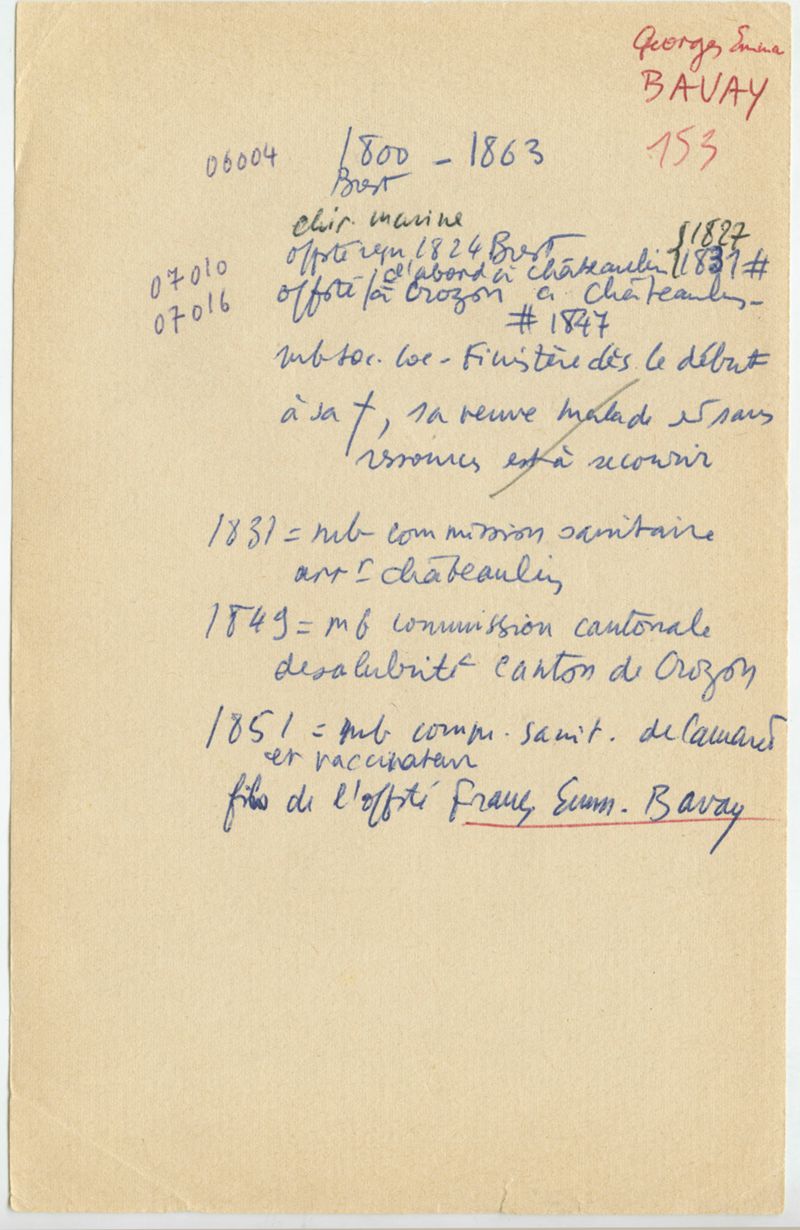 Georges Emma
BAVAY
153
06004 1800 - 1863
Brest
chir. marine
offsté reçu 1824 Brest {1827
d'abord à Châteaulin {1831 #
07010 offsté à Crozon et Châteaulin -
07016 # 1847
mb soc. loc - Finistère dès le début
à sa †, sa veuve malade et sans
ressources est à secourir
1831 = mb commission sanitaire
arrt Châteaulin
1849 = mb commission cantonale
de salubrité canton de Crozon
1851 = mb comm. sanit. de Camaret
et vaccinateur
fils de l'offsté Franç. Emm. Bavay